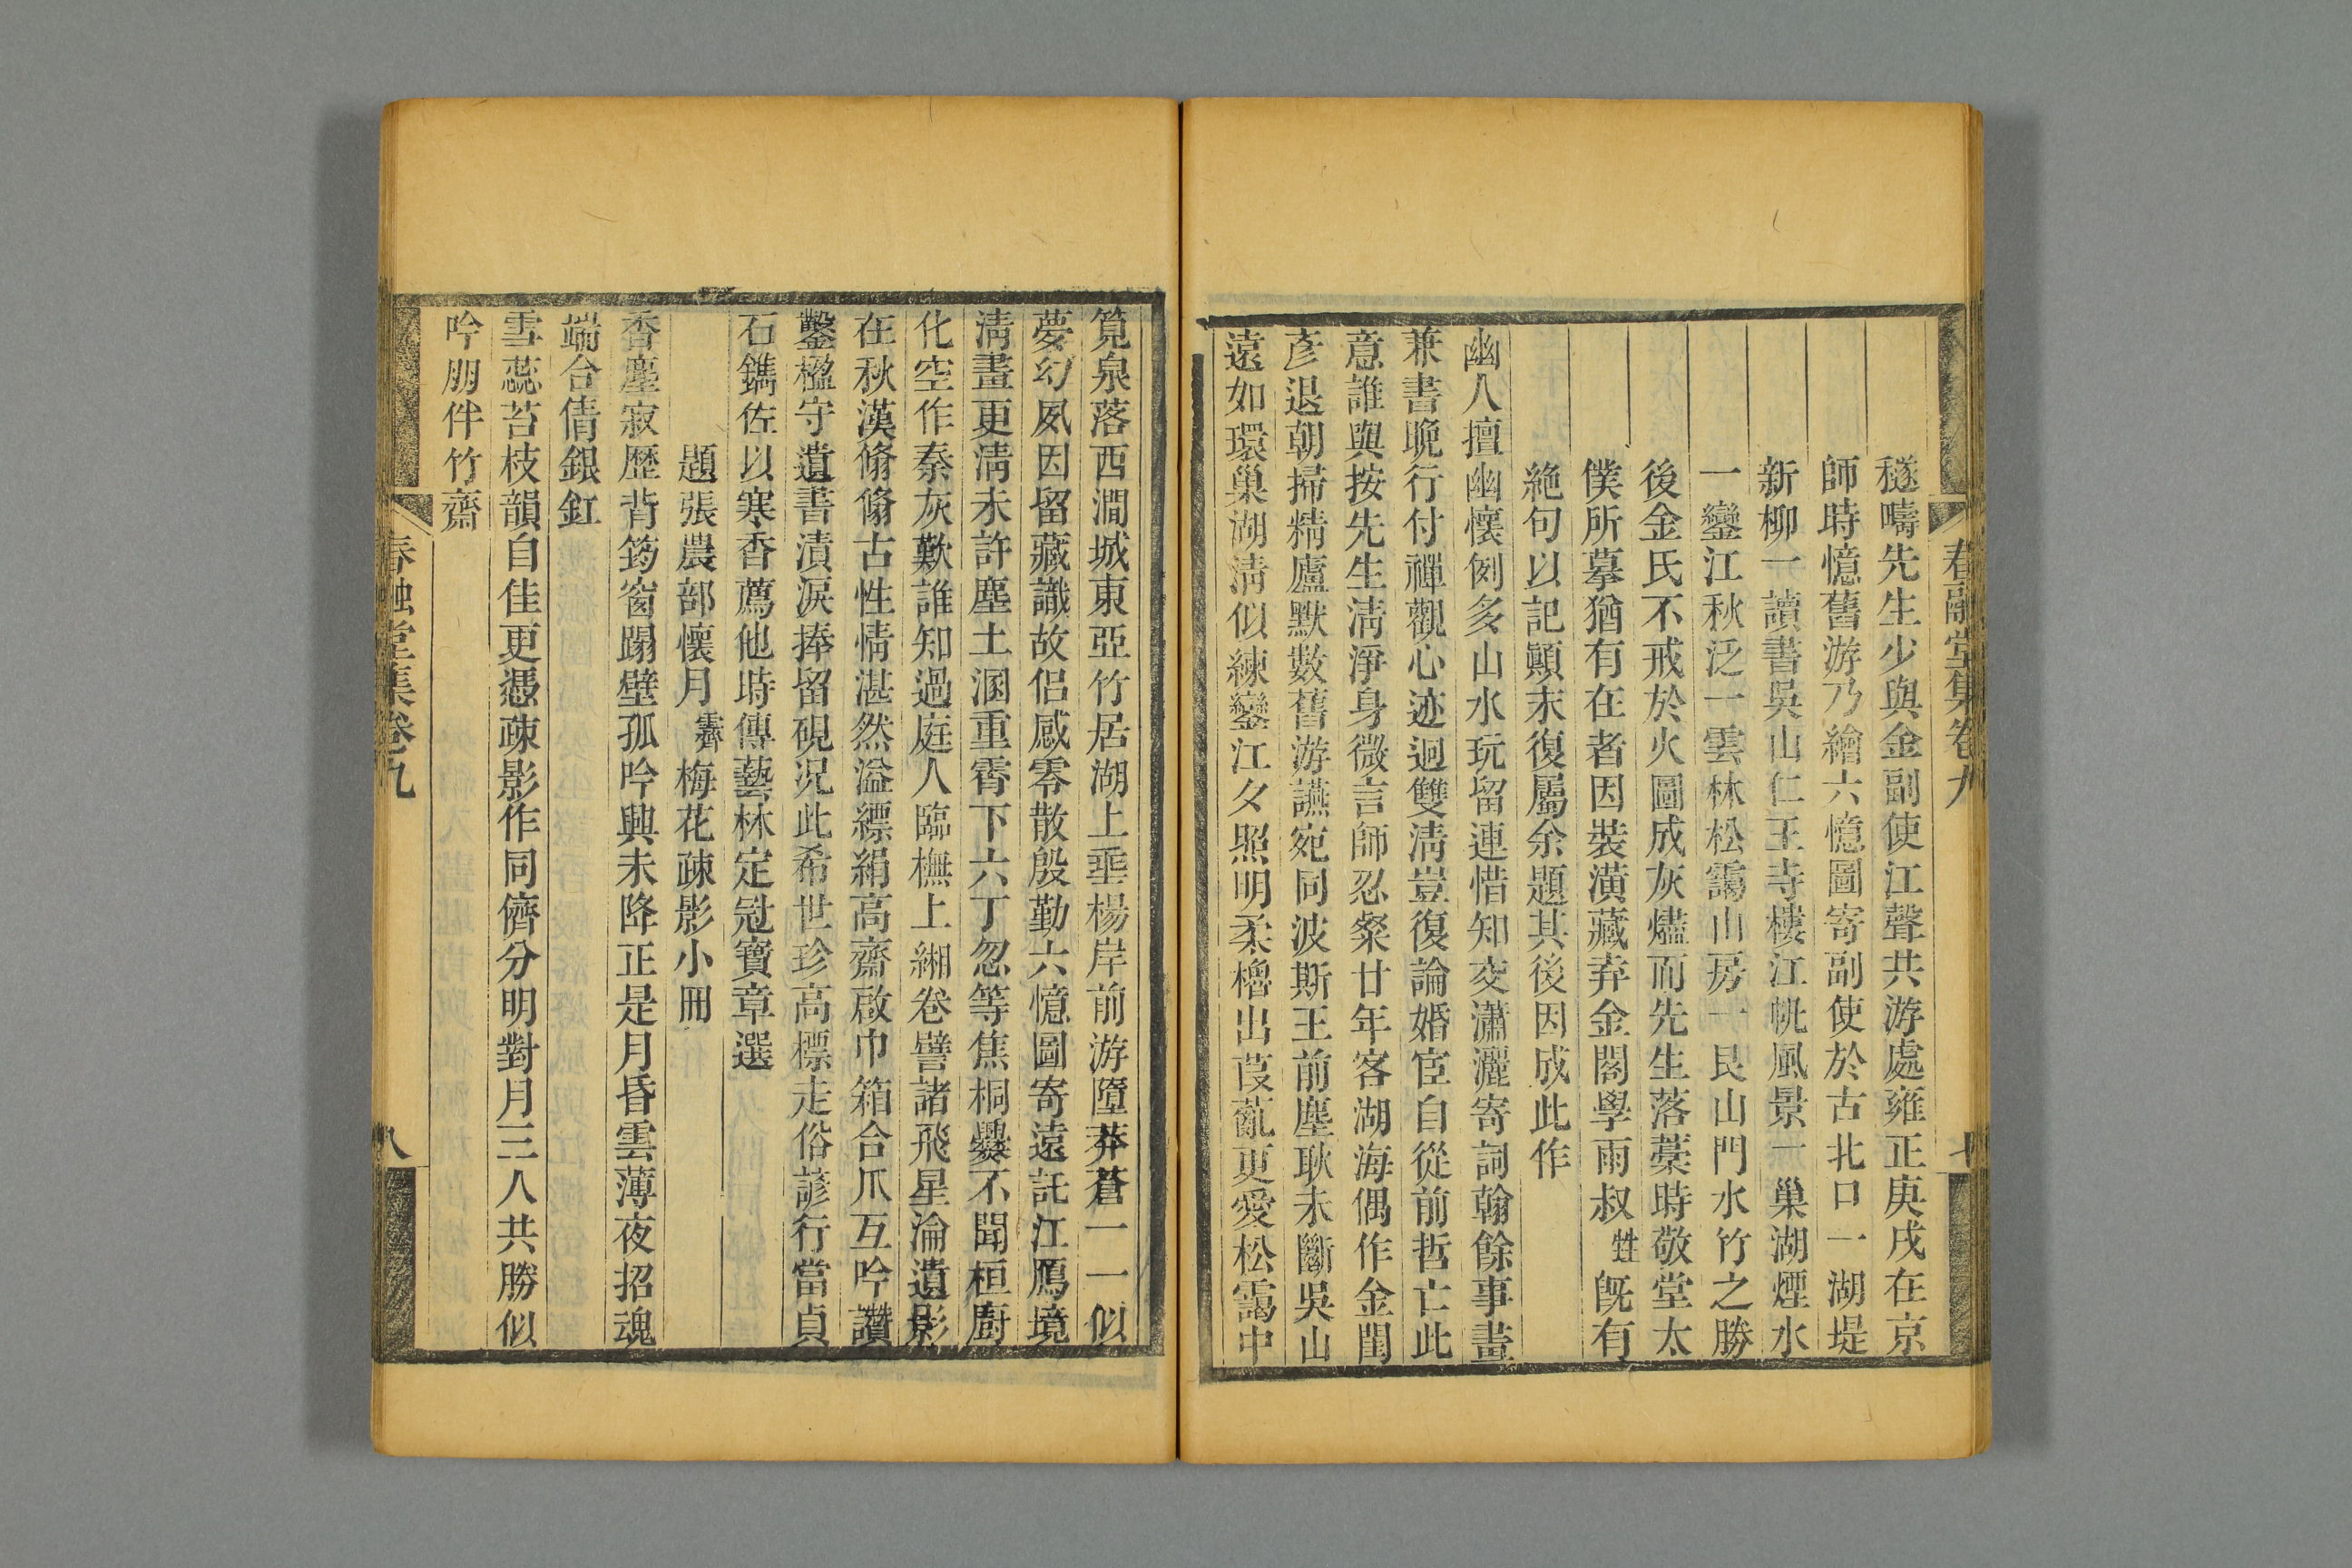 穟疇先生少與金副使江聲共游處雍正庚戌在京
師時憶舊游乃繪六憶圖寄副使於古北口一湖堤
新柳一讀書吳山仁王寺樓江帆風景一巢湖煙水
一鑾江秋泛一雲林松靄山房一艮山門水竹之勝
後金氏不戒於火圖成灰燼而先生落藁時敬堂太
僕所摹猶有在者因裝潢藏弆金閣學雨叔甡旣有
絕句以記顚末復屬余題其後因成此作
幽人擅幽懷例多山水玩留連惜知交瀟灑寄詞翰餘事畫
兼書晚行付禪觀心迹迥雙淸豈復論婚宦自從前哲亡此
意誰與按先生淸淨身微言師忍粲廿年客湖海偶作金閨
彥退朝掃精廬默數舊游讌宛同波斯王前塵耿未斷吳山
遠如環巢湖淸似練鑾江夕照明柔櫓出葭薍更愛松靄中
春融堂集卷九
七
筧泉落西澗城東亞竹居湖上埀楊岸前游墮莽蒼一一似
夢幻夙因留藏識故侶感零散殷勤六憶圖寄遠託江鴈境
淸畫更淸未許塵土溷重霄下六丁忽等焦桐爨不聞桓廚
化空作秦灰歎誰知過庭人臨橅上緗卷譬諸飛星淪遺影
在秋漢翛翛古性情湛然溢縹絹高齋啟巾箱合爪互吟讚
鑿楹守遺書漬淚捧留硯况此希世珍高標走俗諺行當貞
石鐫佐以寒香薦他時傳藝林定冠寶章選
題張農部懷月霽梅花疎影小冊
香塵寂歷背筠窗蹋壁孤吟興未降正是月昏雲薄夜招魂
端合倩銀釭
雪蕊苔枝韻自佳更憑疎影作同儕分明對月三人共勝似
吟朋伴竹齋
春融堂集卷九
八